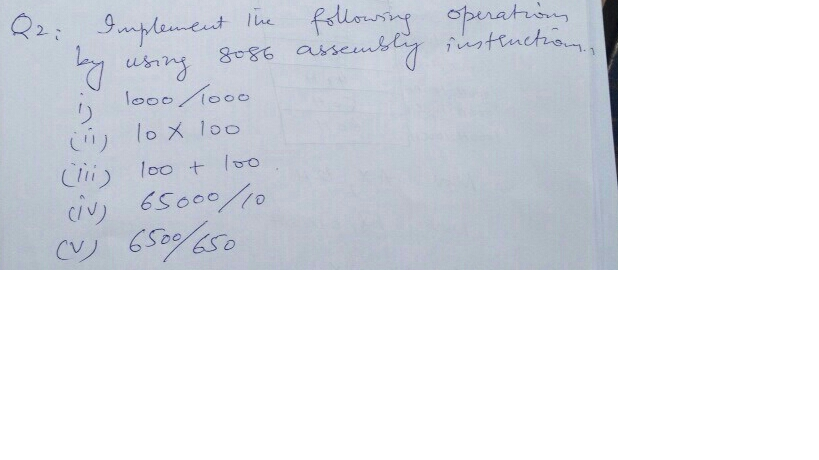 Q2: Implement the following operations
by using 8086 assembly instructions.
i) 1000/1000
(ii) 10 X 100
(iii) 100 + 100
(iv) 65000/10
(v) 6500/650